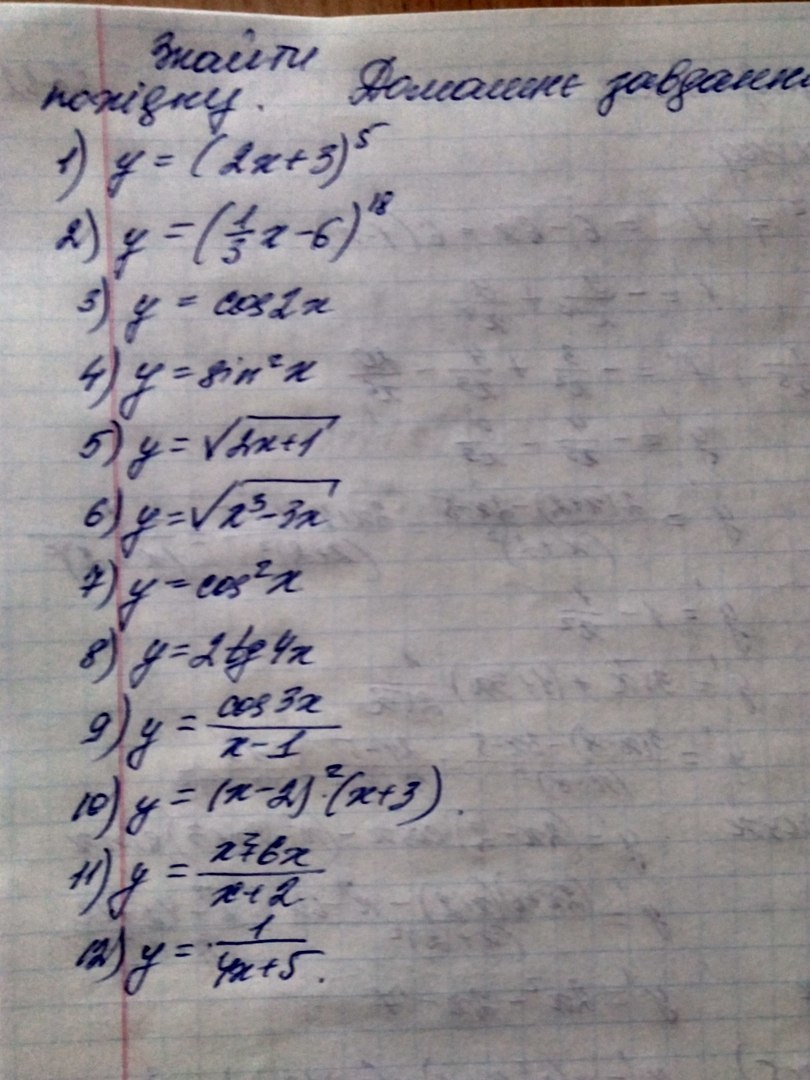 Знайти
похідну. Домашнє завдання
1) y = (2x+3)^5
2) y = (1/3 x - 6)^18
3) y = cos2x
4) y = sin^2 x
5) y = √(2x+1)
6) y = √(x^3-3x)
7) y = cos^2 x
8) y = 2tg4x
9) y = cos3x / (x-1)
10) y = (x-2)^2·(x+3).
11) y = / (x+2)
12) y = 1 / (4x+5).